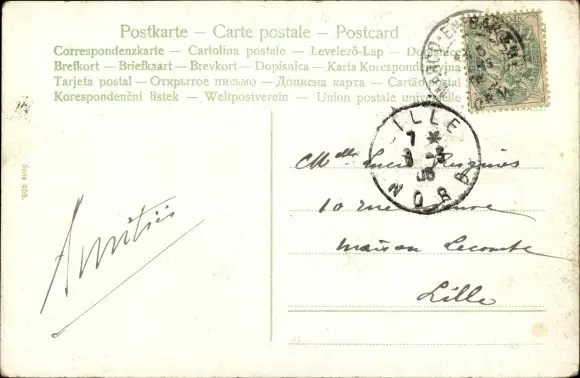 Postkarte — Carte postale — Postcard
Correspondenzkarte — Cartolina postale — Levelező-Lap —
Brefkort — Briefkaart — Brevkort — Dopisnica — Karta Korespondencyjna
Tarjeta postal — Открытое письмо — Дописна карта — Cartão
Korespondenční lístek — Weltpostverein — Union postale universelle
ILLE
7 *
NORD
Melle Lucie
10 rue
maison Lecomte
Lille
Amitiés
Serie 408.